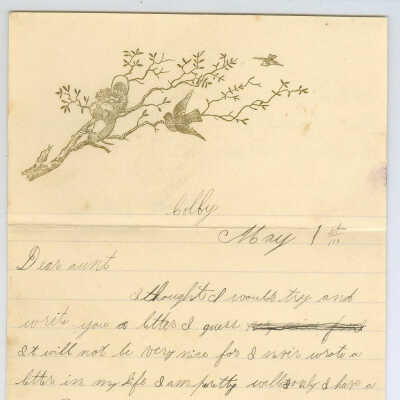 Colby
May 1st
Dear aunt
I thought I would try and
write you a letter I guess
it will not be very nice for I never wrote a
letter in my life I am pretty well only I have a